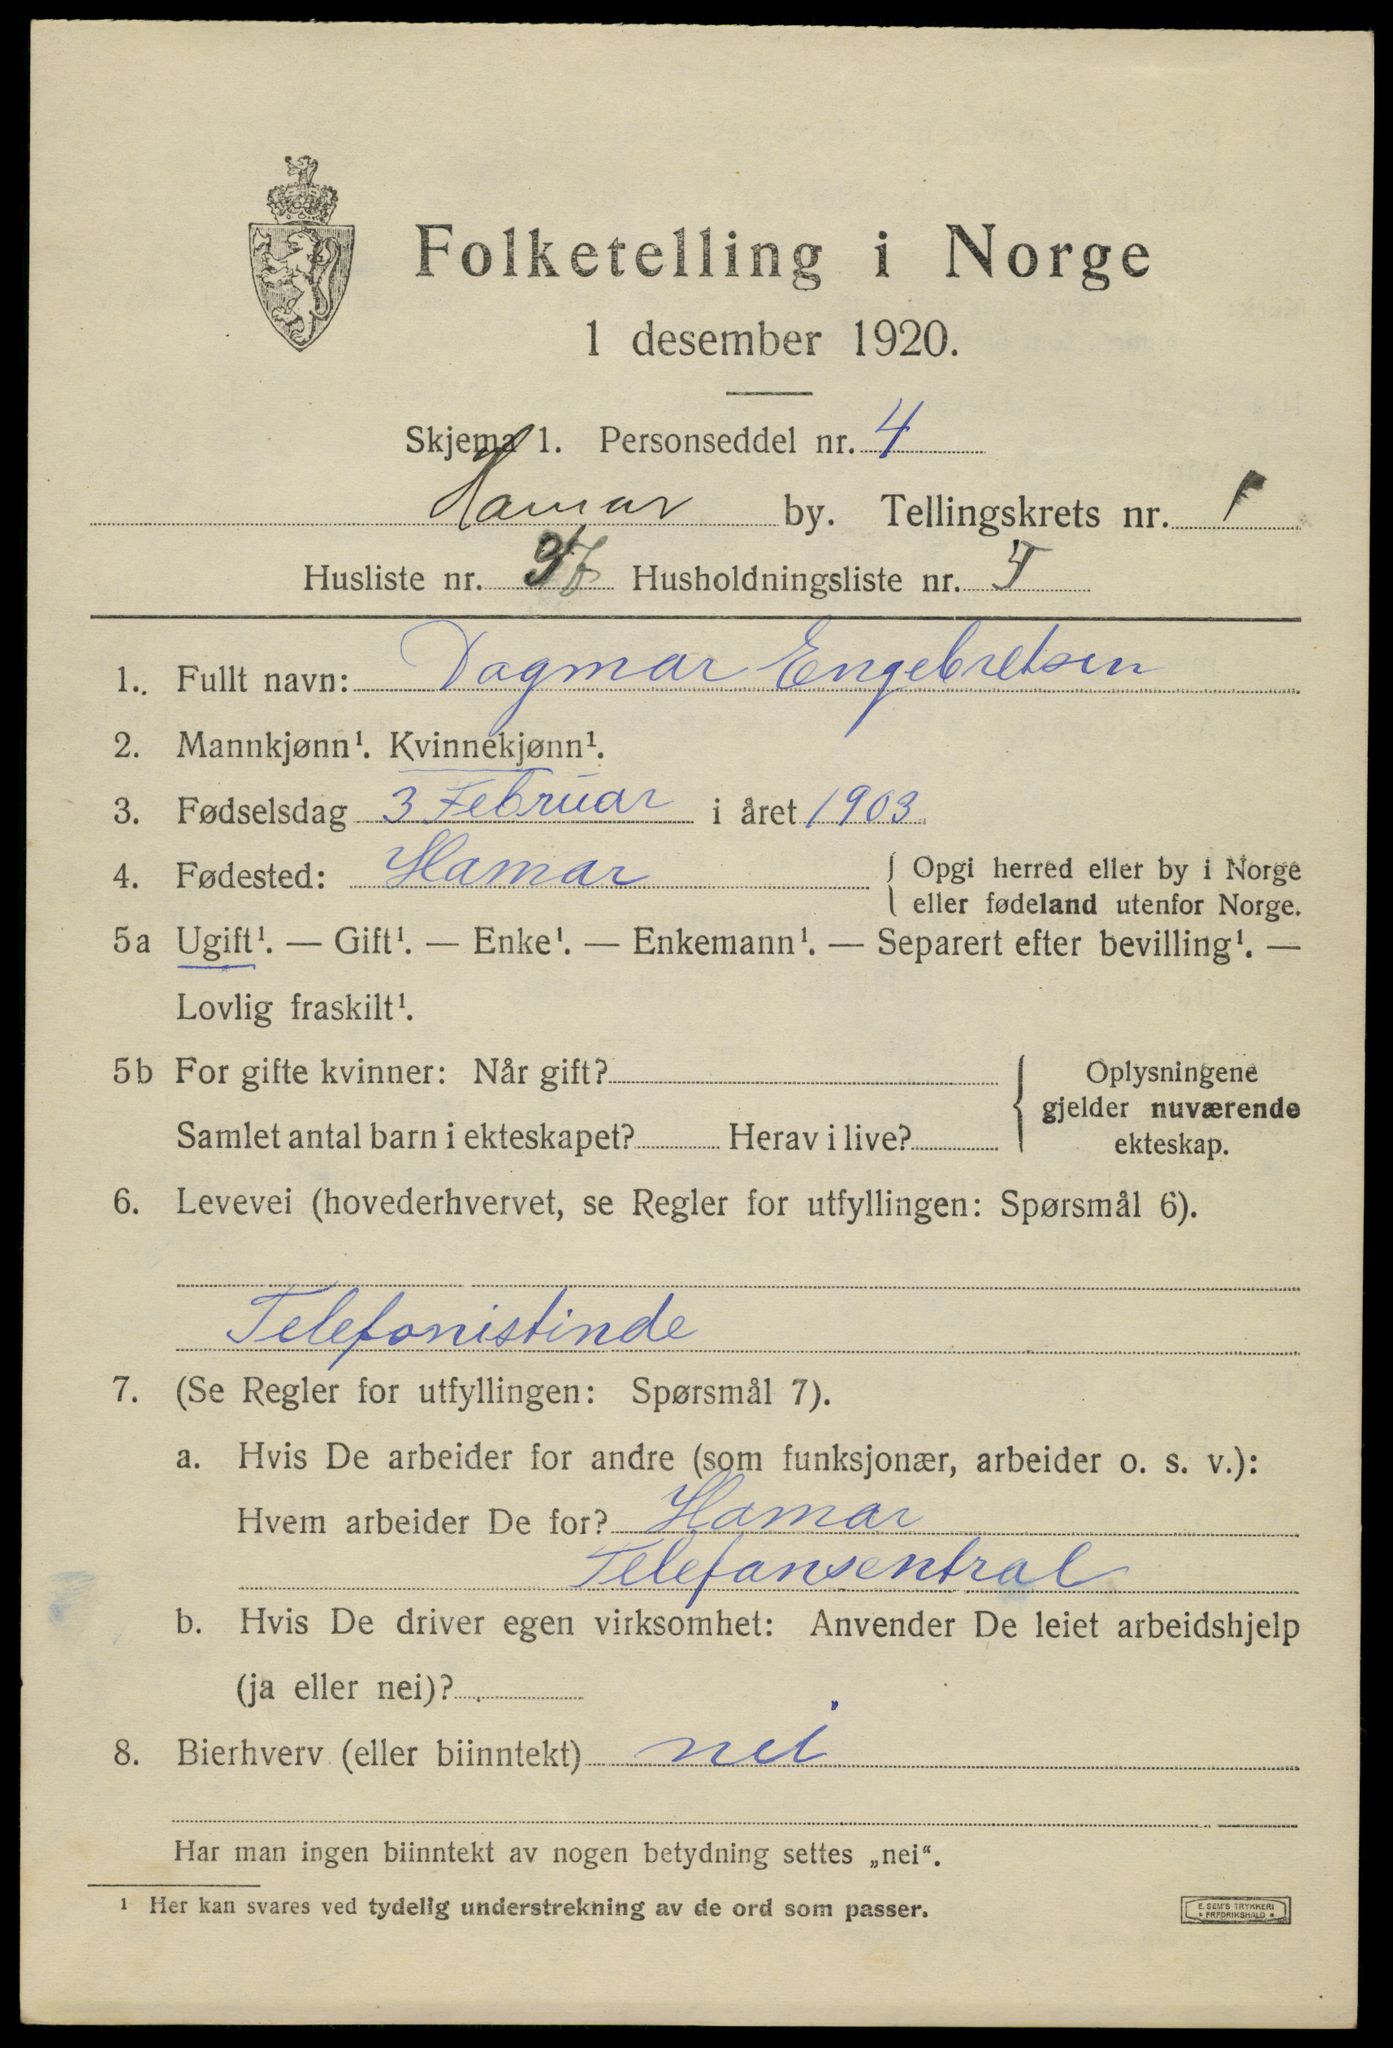 Folketelling i Norge
1 desember 1920.
Skjema 1. Personseddel nr. 4
Hamar by. Tellingskrets nr. 1
Husliste nr. 37 Husholdningsliste nr. 4
1. Fullt navn: Dagmar Engebretsen
2. Mannkjønn¹. Kvinnekjønn¹.
3. Fødselsdag 3 Februar i året 1903
4. Fødested: Hamar { Opgi herred eller by i Norge
eller fødeland utenfor Norge.
5a Ugift¹. — Gift¹. — Enke¹. — Enkemann¹. — Separert efter bevilling¹. —
Lovlig fraskilt¹.
5b For gifte kvinner: Når gift? { Oplysningene
gjelder nuværende
Samlet antal barn i ekteskapet? Herav i live? ekteskap.
6. Levevei (hovederhvervet, se Regler for utfyllingen: Spørsmål 6).
Telefonistinde
7. (Se Regler for utfyllingen: Spørsmål 7).
a. Hvis De arbeider for andre (som funksjonær, arbeider o. s. v.):
Hvem arbeider De for? Hamar
Telefonsentral
b. Hvis De driver egen virksomhet: Anvender De leiet arbeidshjelp
(ja eller nei)?
8. Bierhverv (eller biinntekt) nei
Har man ingen biinntekt av nogen betydning settes „nei“.
¹ Her kan svares ved tydelig understrekning av de ord som passer.
E. SEM'S TRYKKERI
* FREDRIKSHALD *